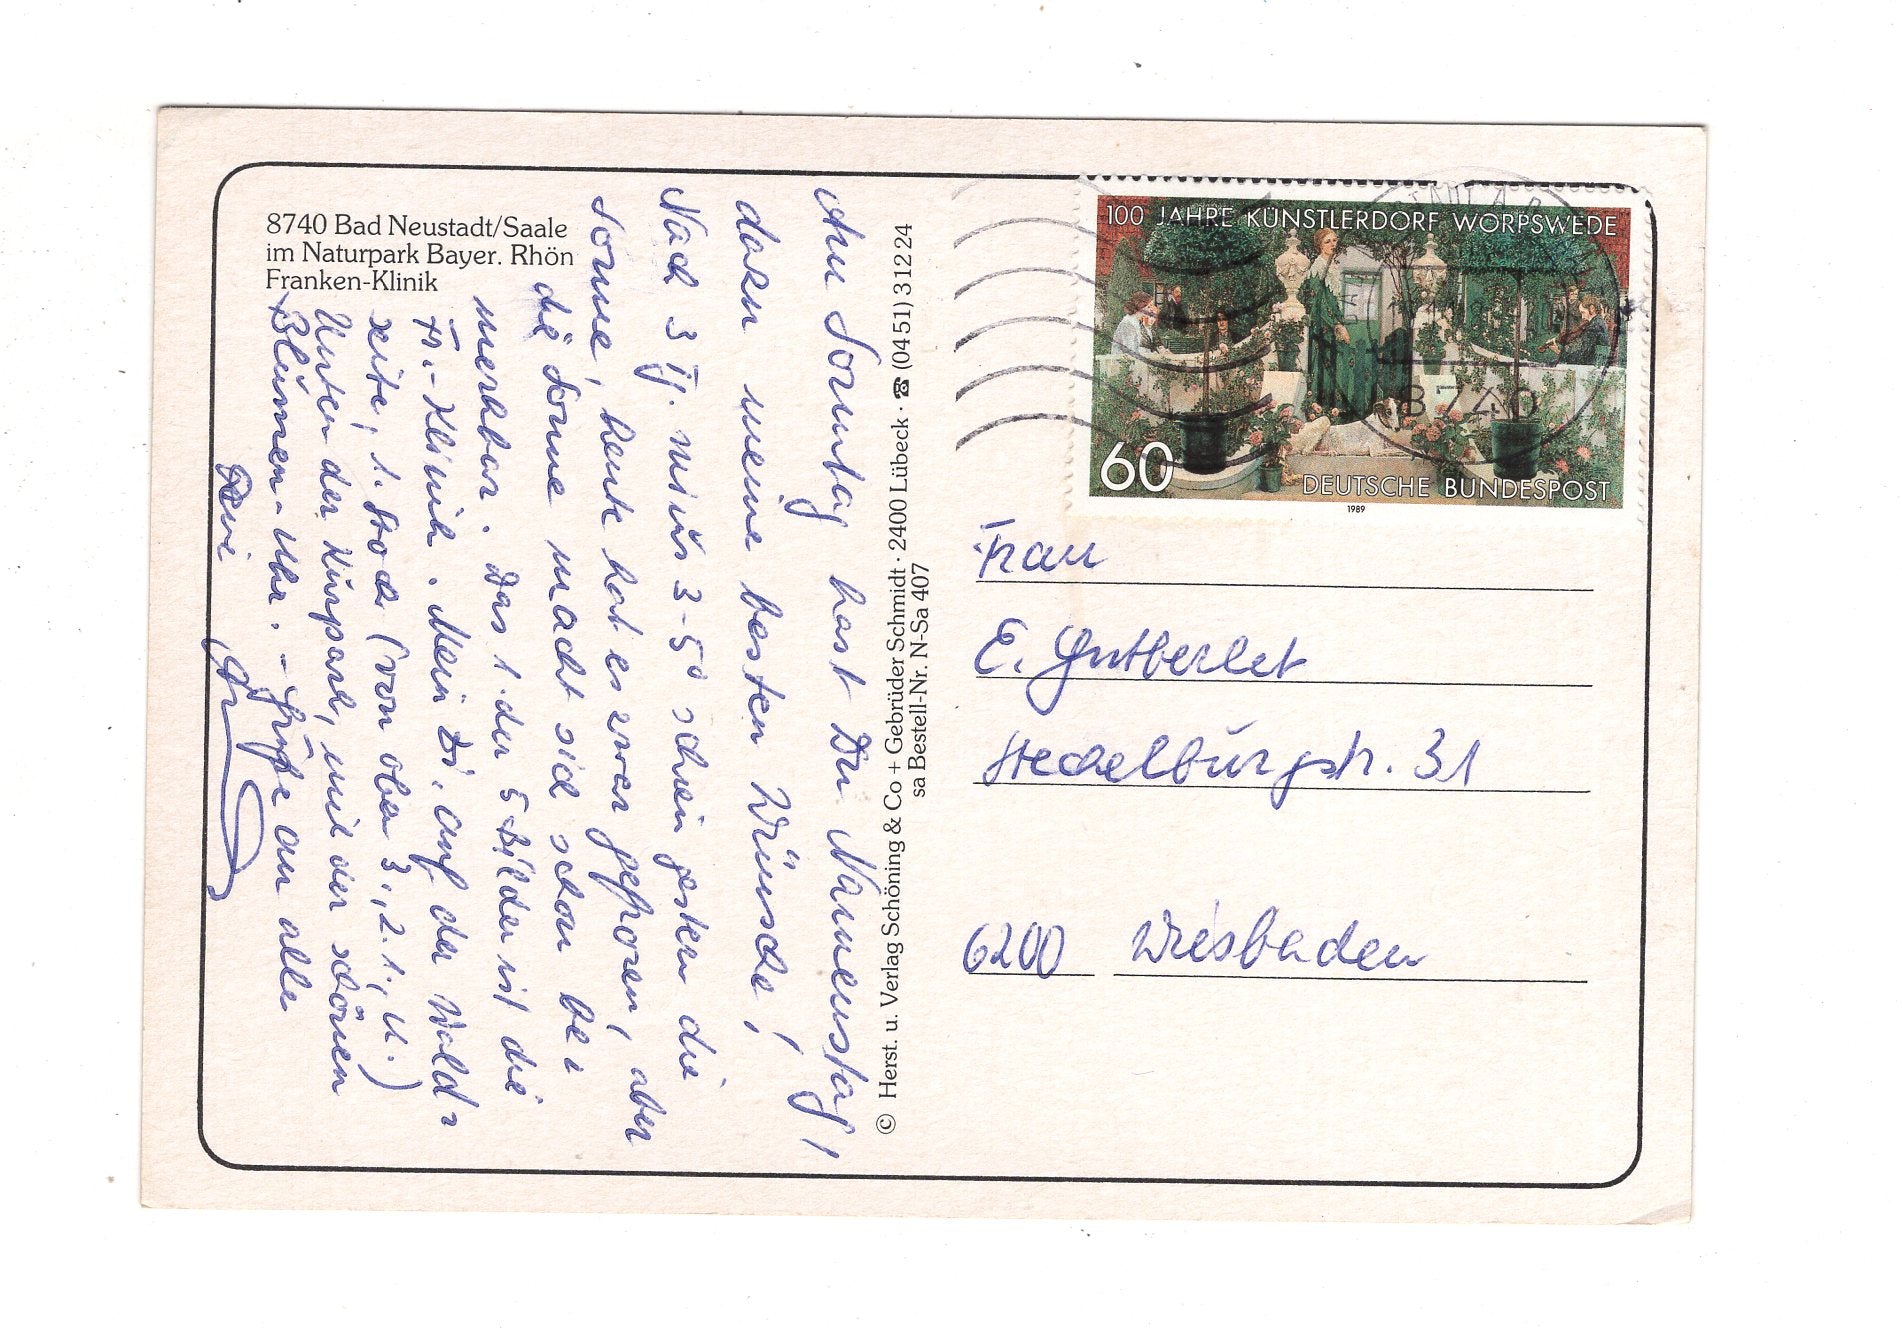 8740 Bad Neustadt/Saale
im Naturpark Bayer. Rhön
Franken-Klinik
Am Sonntag hast Du Namenstag,
dazu meine besten Wünsche!
Nach 3 Tg. minus 3-5° schien gestern die
Sonne, heute hat es zwar gefroren, aber
die Sonne macht sich schon be-
merkbar. Das 1. der 5 Bilder ist die
Fr.-Klinik. Mein Zi. auf der Wald-
seite, 1. Stock (von oben 3., 2. 1., U.)
Unten der Kurpark, mit der schönen
Blumen-Uhr. - Grüße an alle
Deine
© Herst. u. Verlag Schöning & Co + Gebrüder Schmidt · 2400 Lübeck · ☎ (04 51) 3 12 24
sa Bestell-Nr. N-Sa 407
100 JAHRE KÜNSTLERDORF WORPSWEDE
60
DEUTSCHE BUNDESPOST
1989
8740
Frau
E. Gutberlet
31
6200 Wiesbaden